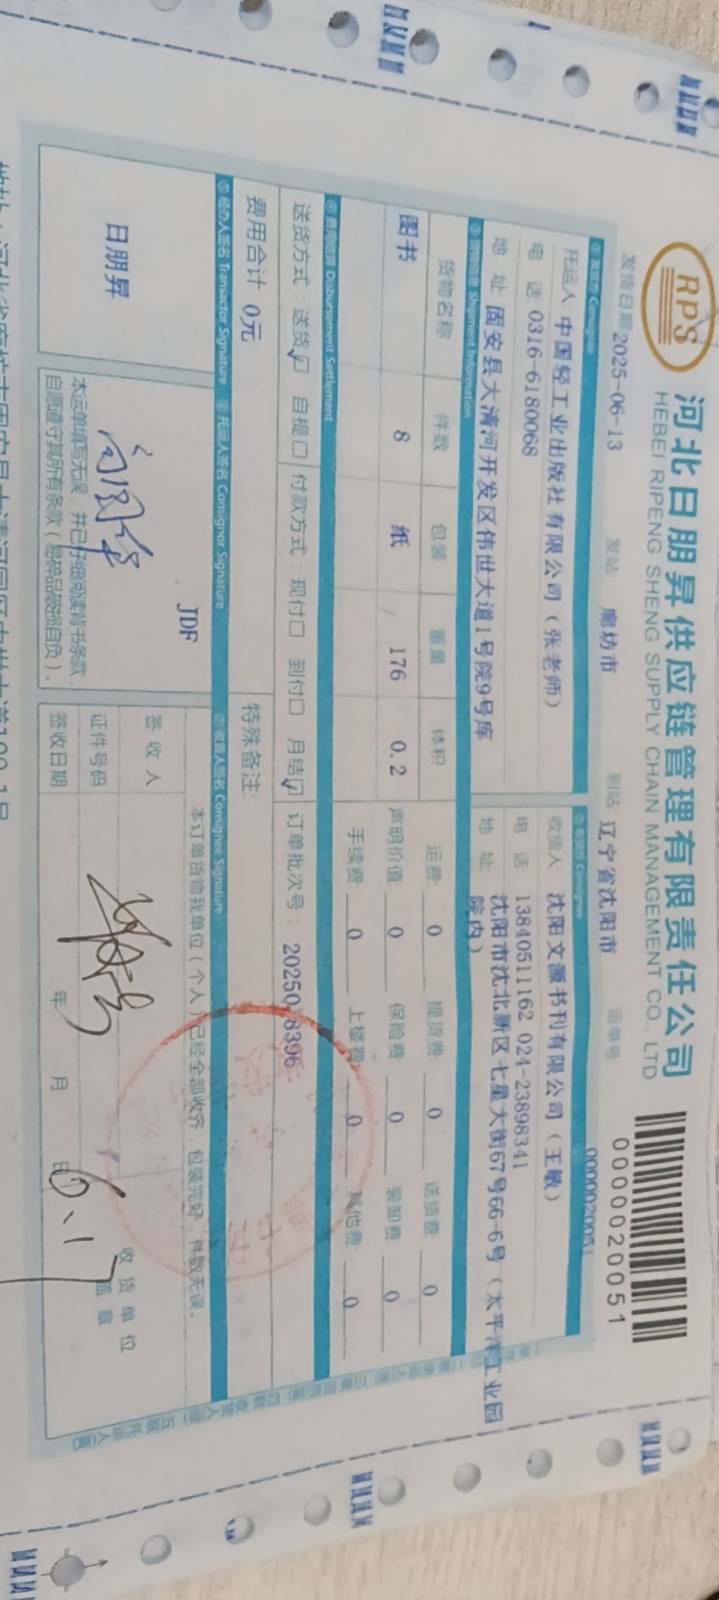 RPS
河北日朋昇供应链管理有限责任公司
HEBEI RIPENG SHENG SUPPLY CHAIN MANAGEMENT CO., LTD
0000020051
发货日期 2025-06-13 发站 廊坊市 到站 辽宁省沈阳市 运单号 0000020051
① 发货方 Consigner ② 收货方 Consignee
托运人 中国轻工业出版社有限公司（张老师） 收货人 沈阳文源书刊有限公司（王敏）
电 话 0316-6180068 电 话 13840511162 024-23898341
地 址 固安县大清河开发区伟世大道1号院9号库 地 址 沈阳市沈北新区七星大街67号66-6号（太平洋工业园院内）
③ 货物信息 Shipment Information
货物名称 件数 包装 重量 体积 运费: 0 提货费: 0 送货费: 0
图书 8 纸 / 176 0.2 声明价值: 0 保险费: 0 装卸费: 0
手续费: 0 上楼费: 0 其他费: 0
④ 费用结算 Disbursement Settlement
送货方式: 送货☑ 自提□ 付款方式: 现付□ 到付□ 月结☑ 订单批次号: 8396
费用合计 0元 特殊备注:
⑤ 经办人签名 Transactor Signature ⑥ 托运人签名 Consignor Signature ⑦ 收货人签名 Consignee Signature
日朋昇
JDF
本运单填写无误，并已仔细阅读背书条款，
自愿遵守其所有条款（易碎品破损自负）。
本订单货物我单位（个人）已经全部收齐，包装完好，件数无误。
签 收 人
证件号码
收货单位
盖 章
签收日期 年 月 日